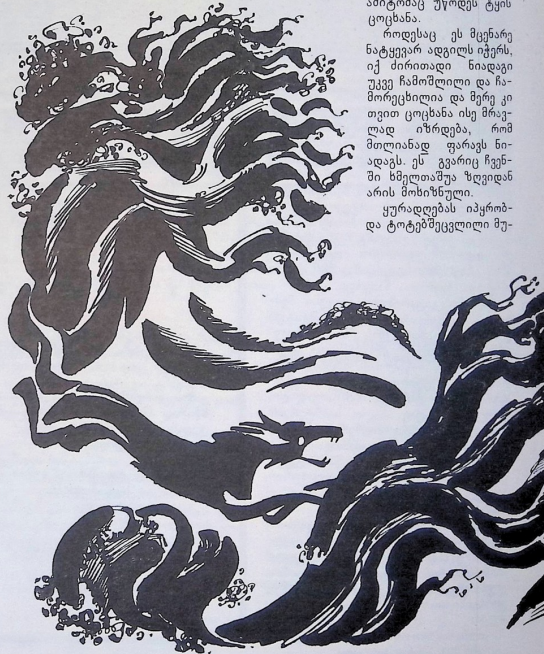 ამიტომაც უწოდეს ტყის
ცოცხანა.
როდესაც ეს მცენარე
ნატყევარ ადგილს იჭერს,
იქ ძირითადი ნიადაგი
უკვე ჩამოშლილი და ჩა-
მორეცხილია და მერე კი
თვით ცოცხანა ისე მრავ-
ლად იზრდება, რომ
მთლიანად ფარავს ნი-
ადაგს. ეს გვარიც ჩვენ-
ში ხმელთაშუა ზღვიდან
არის მოხიზნული.
ყურადღებას იპყრობ-
და ტოტებშეცვლილი მუ-